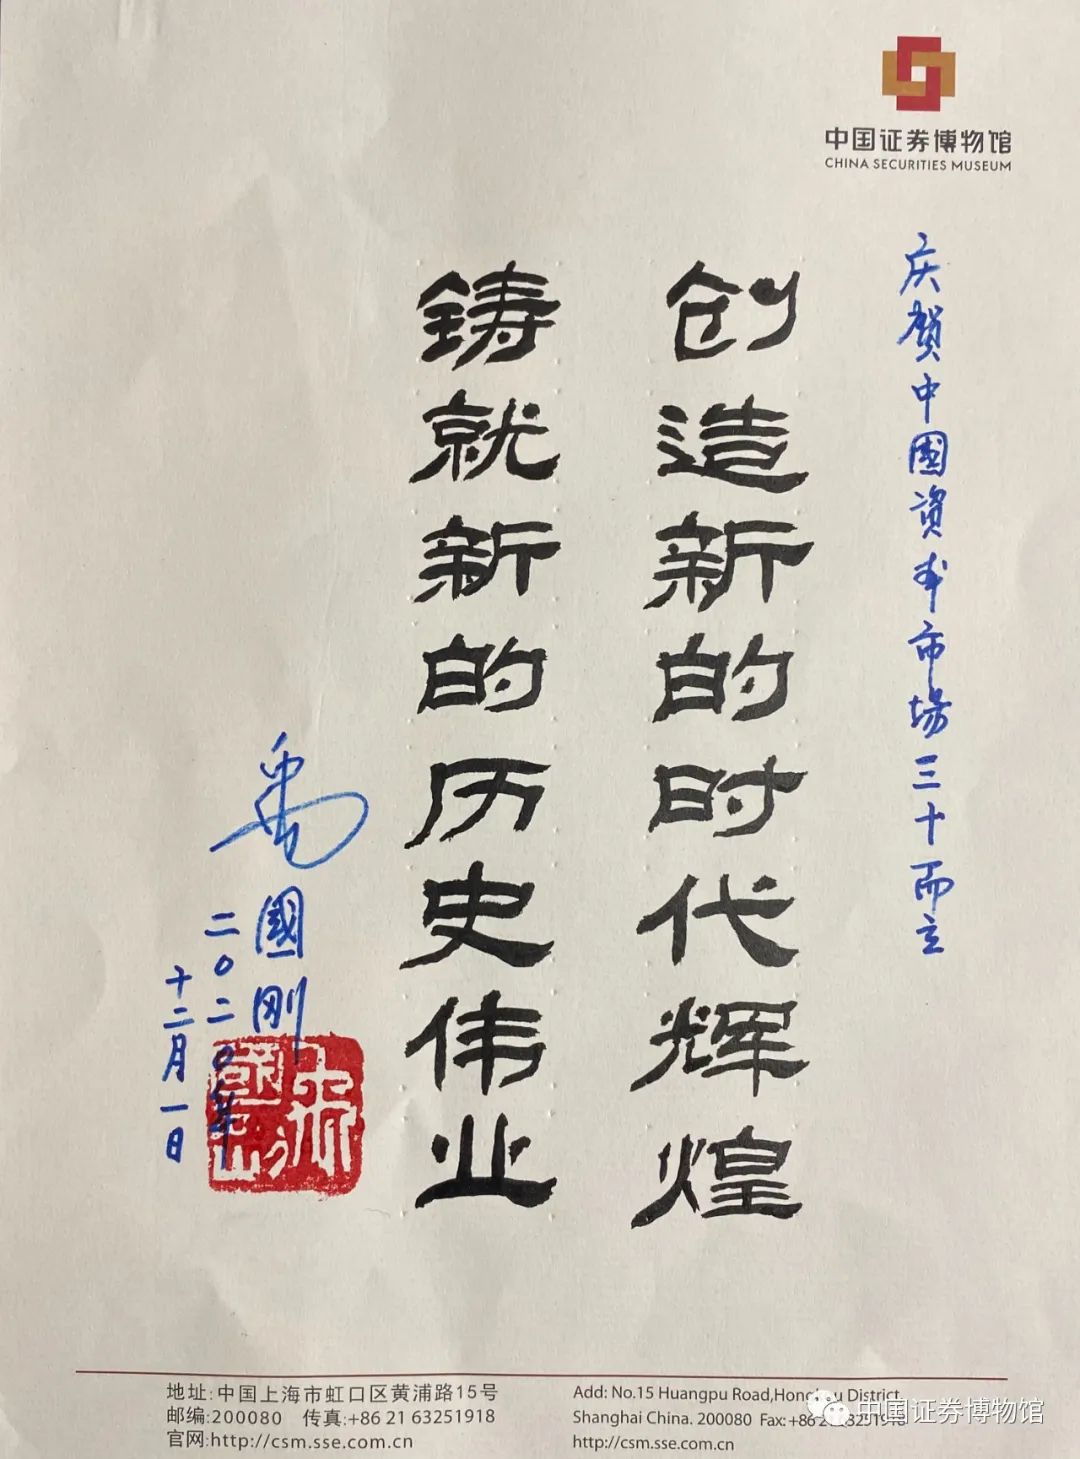 中国证券博物馆
CHINA SECURITIES MUSEUM
庆贺中國資本市场三十而立
创造新的时代辉煌
铸就新的历史伟业
禹國刚
二〇二〇年
十二月一日
地址:中国上海市虹口区黄浦路15号
邮编:200080 传真:+86 21 63251918
官网:http://csm.sse.com.cn
Add: No.15 Huangpu Road,Hongkou District,
Shanghai China. 200080 Fax:+86 21 63251918
http://csm.sse.com.cn
中国证券博物馆